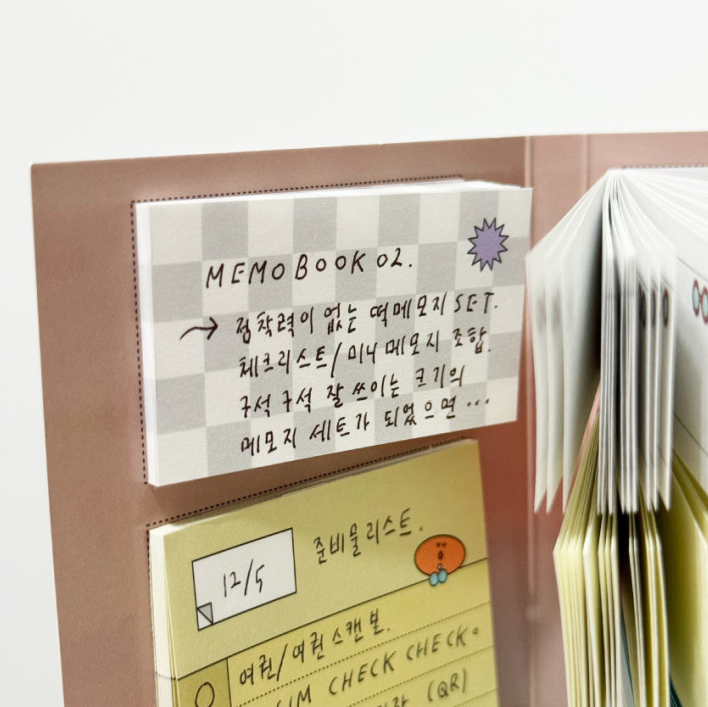 MEMO BOOK 02.
→ 점착력이 없는 떡메모지 SET.
체크리스트/미니 메모지 조합.
구석 구석 잘 쓰이는 크기의
메모지 세트가 되었으면...
12/5
준비물리스트.
여권/여권스캔본.
CHECK CHECK.
(QR)